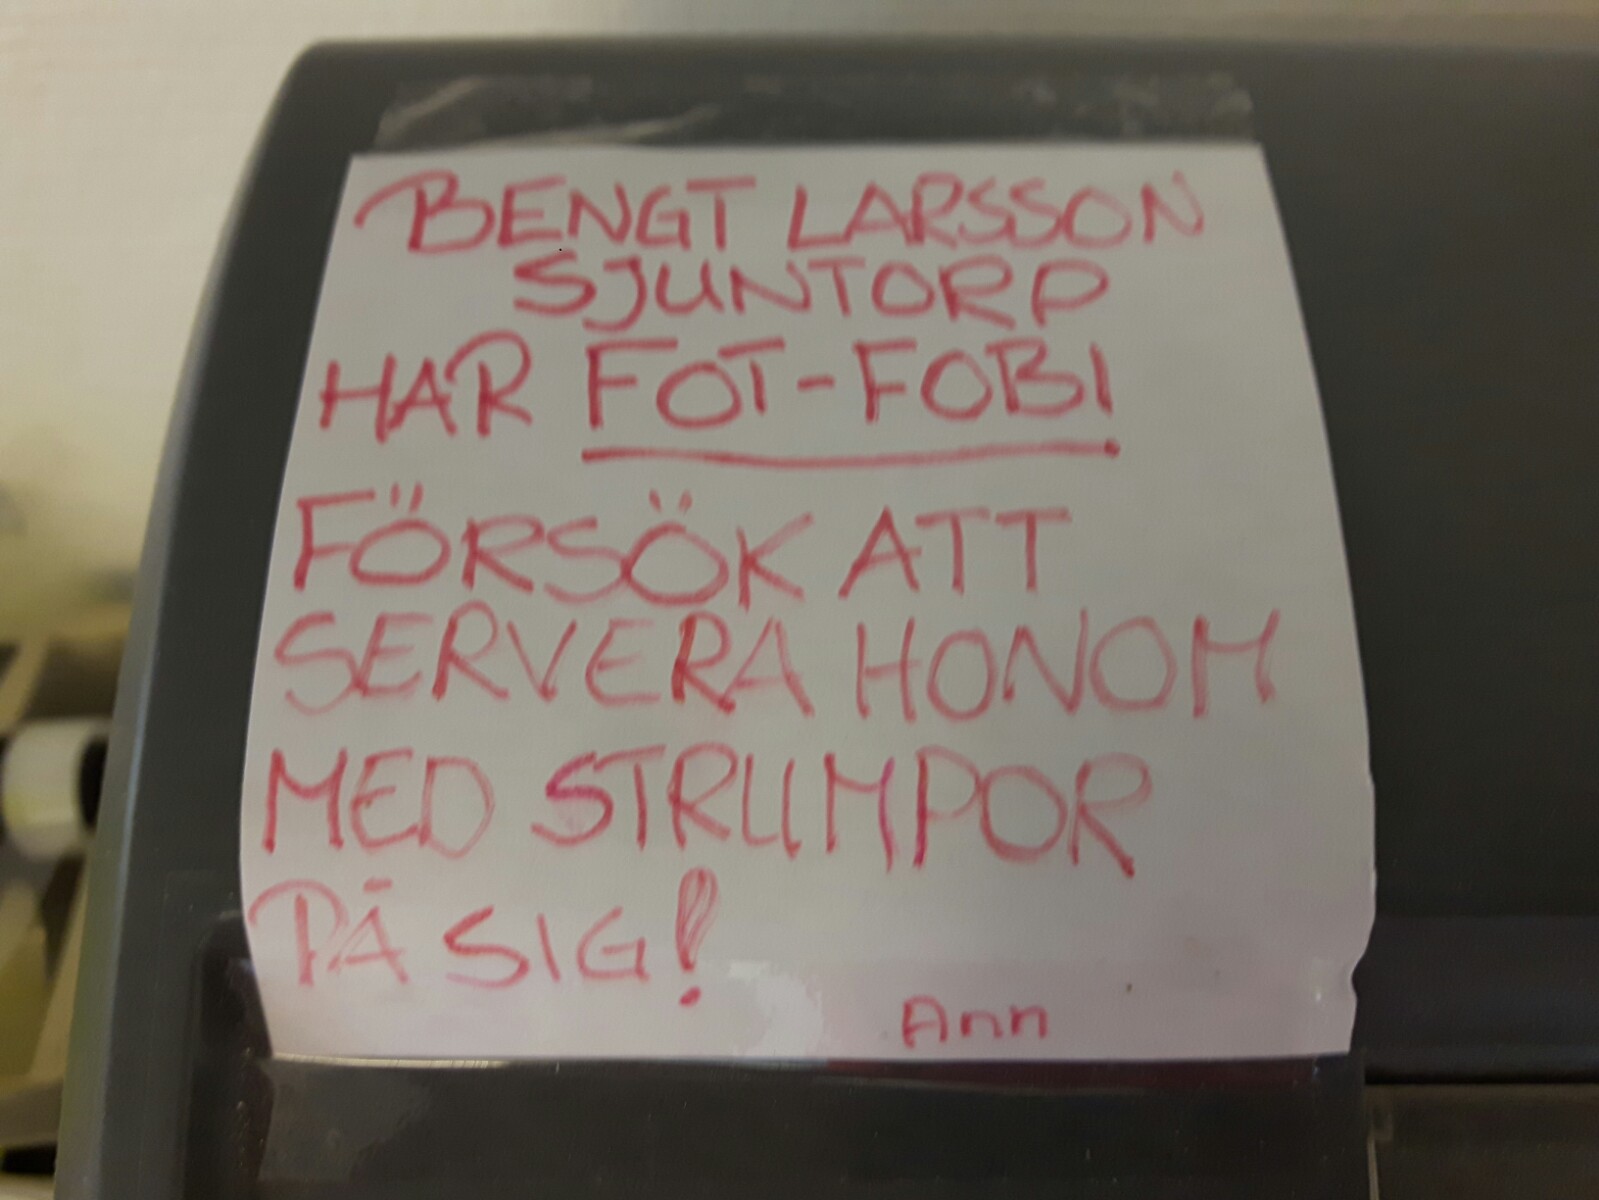 BENGT LARSSON
SJUNTORP
HAR FOT-FOBI
FÖRSÖK ATT
SERVERA HONOM
MED STRUMPOR
PÅ SIG!
Ann